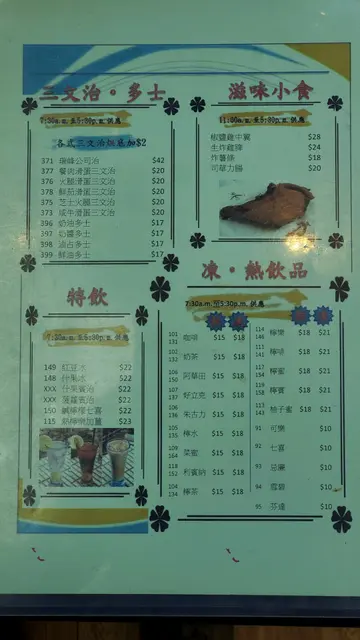 三文治。多士
7:30a.m.至5:30p.m.供應
各式三文治烘底加$2
371 瑞峰公司治 $42
377 餐肉滑蛋三文治 $20
376 火腿滑蛋三文治 $20
378 鮮茄滑蛋三文治 $20
375 芝士火腿三文治 $20
373 咸牛滑蛋三文治 $20
396 奶油多士 $17
397 奶醬多士 $17
398 油占多士 $17
399 鮮油多士 $17
滋味小食
11:00a.m.至5:30p.m.供應
椒鹽雞中翼 $28
生炸雞髀 $24
炸薯條 $18
司華力腸 $20
特飲
7:30a.m.至5:30p.m.供應
149 紅豆冰 $22
148 什果冰 $22
XXX 什果賓治 $22
XXX 菠蘿賓治 $22
150 鹹檸檬七喜 $22
115 熱檸樂加薑 $23
凍。熱飲品
7:30a.m.至5:30p.m.供應
101 131 咖啡 $15 $18
102 132 奶茶 $15 $18
阿華田 $15 $18
好立克 $15 $18
106 136 朱古力 $15 $18
105 135 檸水 $15 $18
109 164 菜蜜 $15 $18
118 152 利賓納 $15 $18
104 134 檸茶 $15 $18
114 146 檸樂 $18 $21
111 141 檸啡 $18 $21
檸蜜 $18 $21
檸賓 $18 $21
113 柚子蜜 $18 $21
91 可樂 $10
92 七喜 $10
93 忌廉 $10
94 雪碧 $10
95 芬達 $10